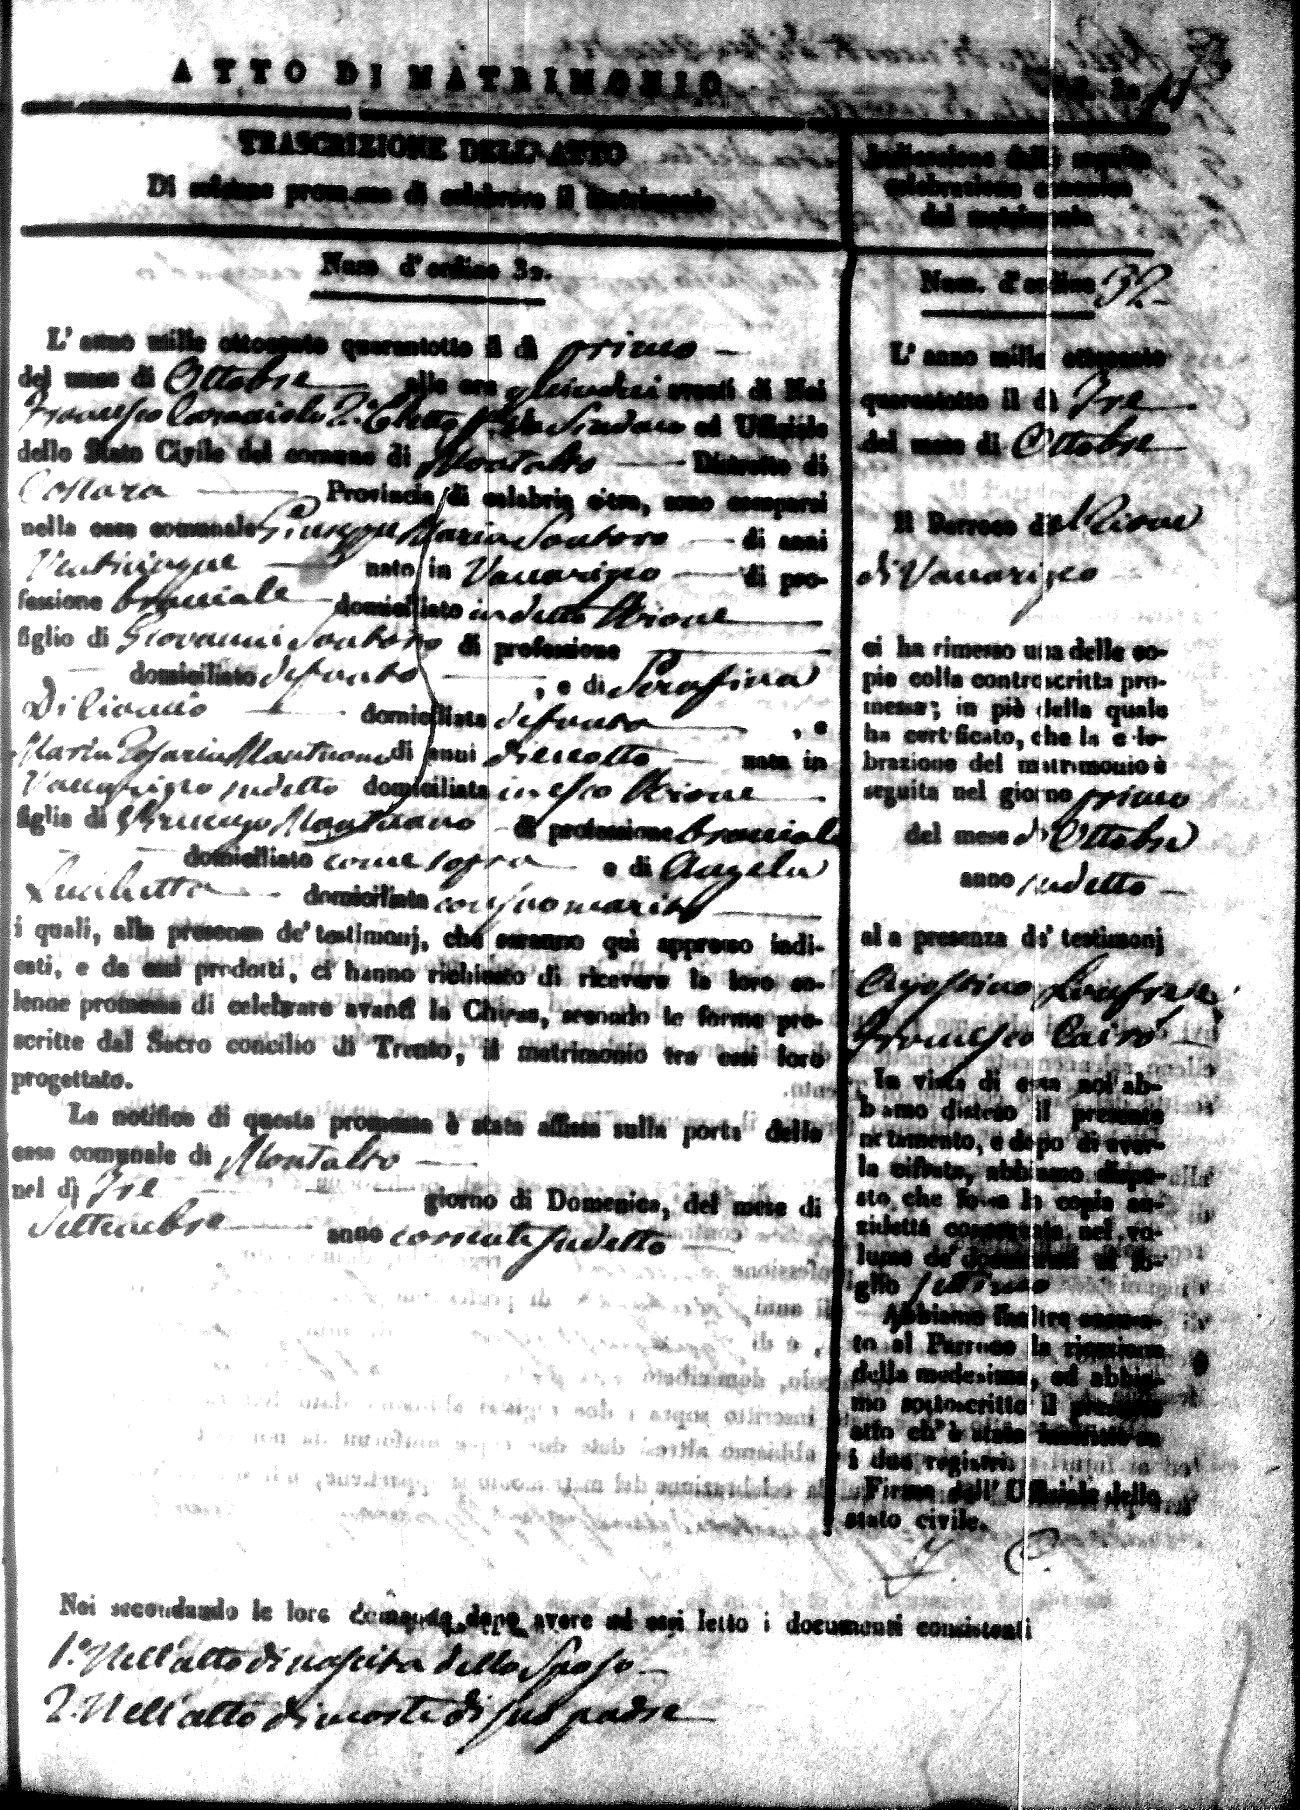 ATTO DI MATRIMONIO
TRASCRIZIONE DELL' ATTO
Di solenne promessa di celebrare il matrimonio
Num. d'ordine 32.
L' anno mille ottocento quarantotto il dì primo
del mese di Ottobre alle ore quindici avanti di Noi
Francesco Caracciolo 2.° Eletto Sindaco ed Uffiziale
dello Stato Civile del comune di Montalto Distretto di
Cosenza Provincia di calabria citra, sono comparsi
nella casa comunale Giuseppe Maria Santoro di anni
Venticinque nato in Vaccarizzo di pro-
fessione bracciale domiciliato in detto Rione
figlio di Giovanni Santoro di professione
domiciliato defunto , e di Serafina
domiciliata defunta , e
Maria Rosaria Mantuano di anni dieciotto nata in
Vaccarizzo sudetto domiciliata in esso Rione
figlia di Vincenzo Mantuano di professione bracciale
domiciliato come sopra e di Angela
Luchetta domiciliata con suo marito
i quali, alla presenza de' testimonj, che saranno quì appresso indi-
cati, e da essi prodotti, ci hanno richiesto di ricevere la loro so-
lenne promessa di celebrare avanti la Chiesa, secondo le forme pre-
scritte dal Sacro concilio di Trento, il matrimonio tra essi loro
progettato.
La notifica di questa promessa è stata affissa sulla porta della
casa comunale di Montalto
nel dì Tre giorno di Domenica, del mese di
Settembre anno corrente sudetto
Noi secondando le loro domande dopo avere ad essi letto i documenti consistenti
1.° Nell'atto di nascita dello Sposo
2. Nell'atto di morte di suo padre
Indicazione della seguita
celebrazione canonica
del matrimonio
Num. d' ordine 32
L' anno mille ottocento
quarantotto il dì Tre
del mese di Ottobre
Il Parroco del Rione
di Vaccarizzo
ci ha rimesso una delle co-
pie colla controscritta pro-
messa; in piè della quale
ha certificato, che la cele-
brazione del matrimonio è
seguita nel giorno primo
del mese di Ottobre
anno sudetto
alla presenza de' testimonj
Agostino
Francesco Cairo
In vista di essa noi ab-
biamo disteso il presente
notamento, e dopo di aver-
la cifrata, abbiamo dispo-
sto che fosse la copia an-
zidetta conservata nel vo-
lume de' documenti al fo-
glio settimo
Abbiamo inoltre accusa-
to al Parroco la ricezione
della medesima, ed abbia-
mo sottoscritto il presente
atto ch' è stato inscritto su
i due registri
Firma dell' Uffiziale dello
stato civile.